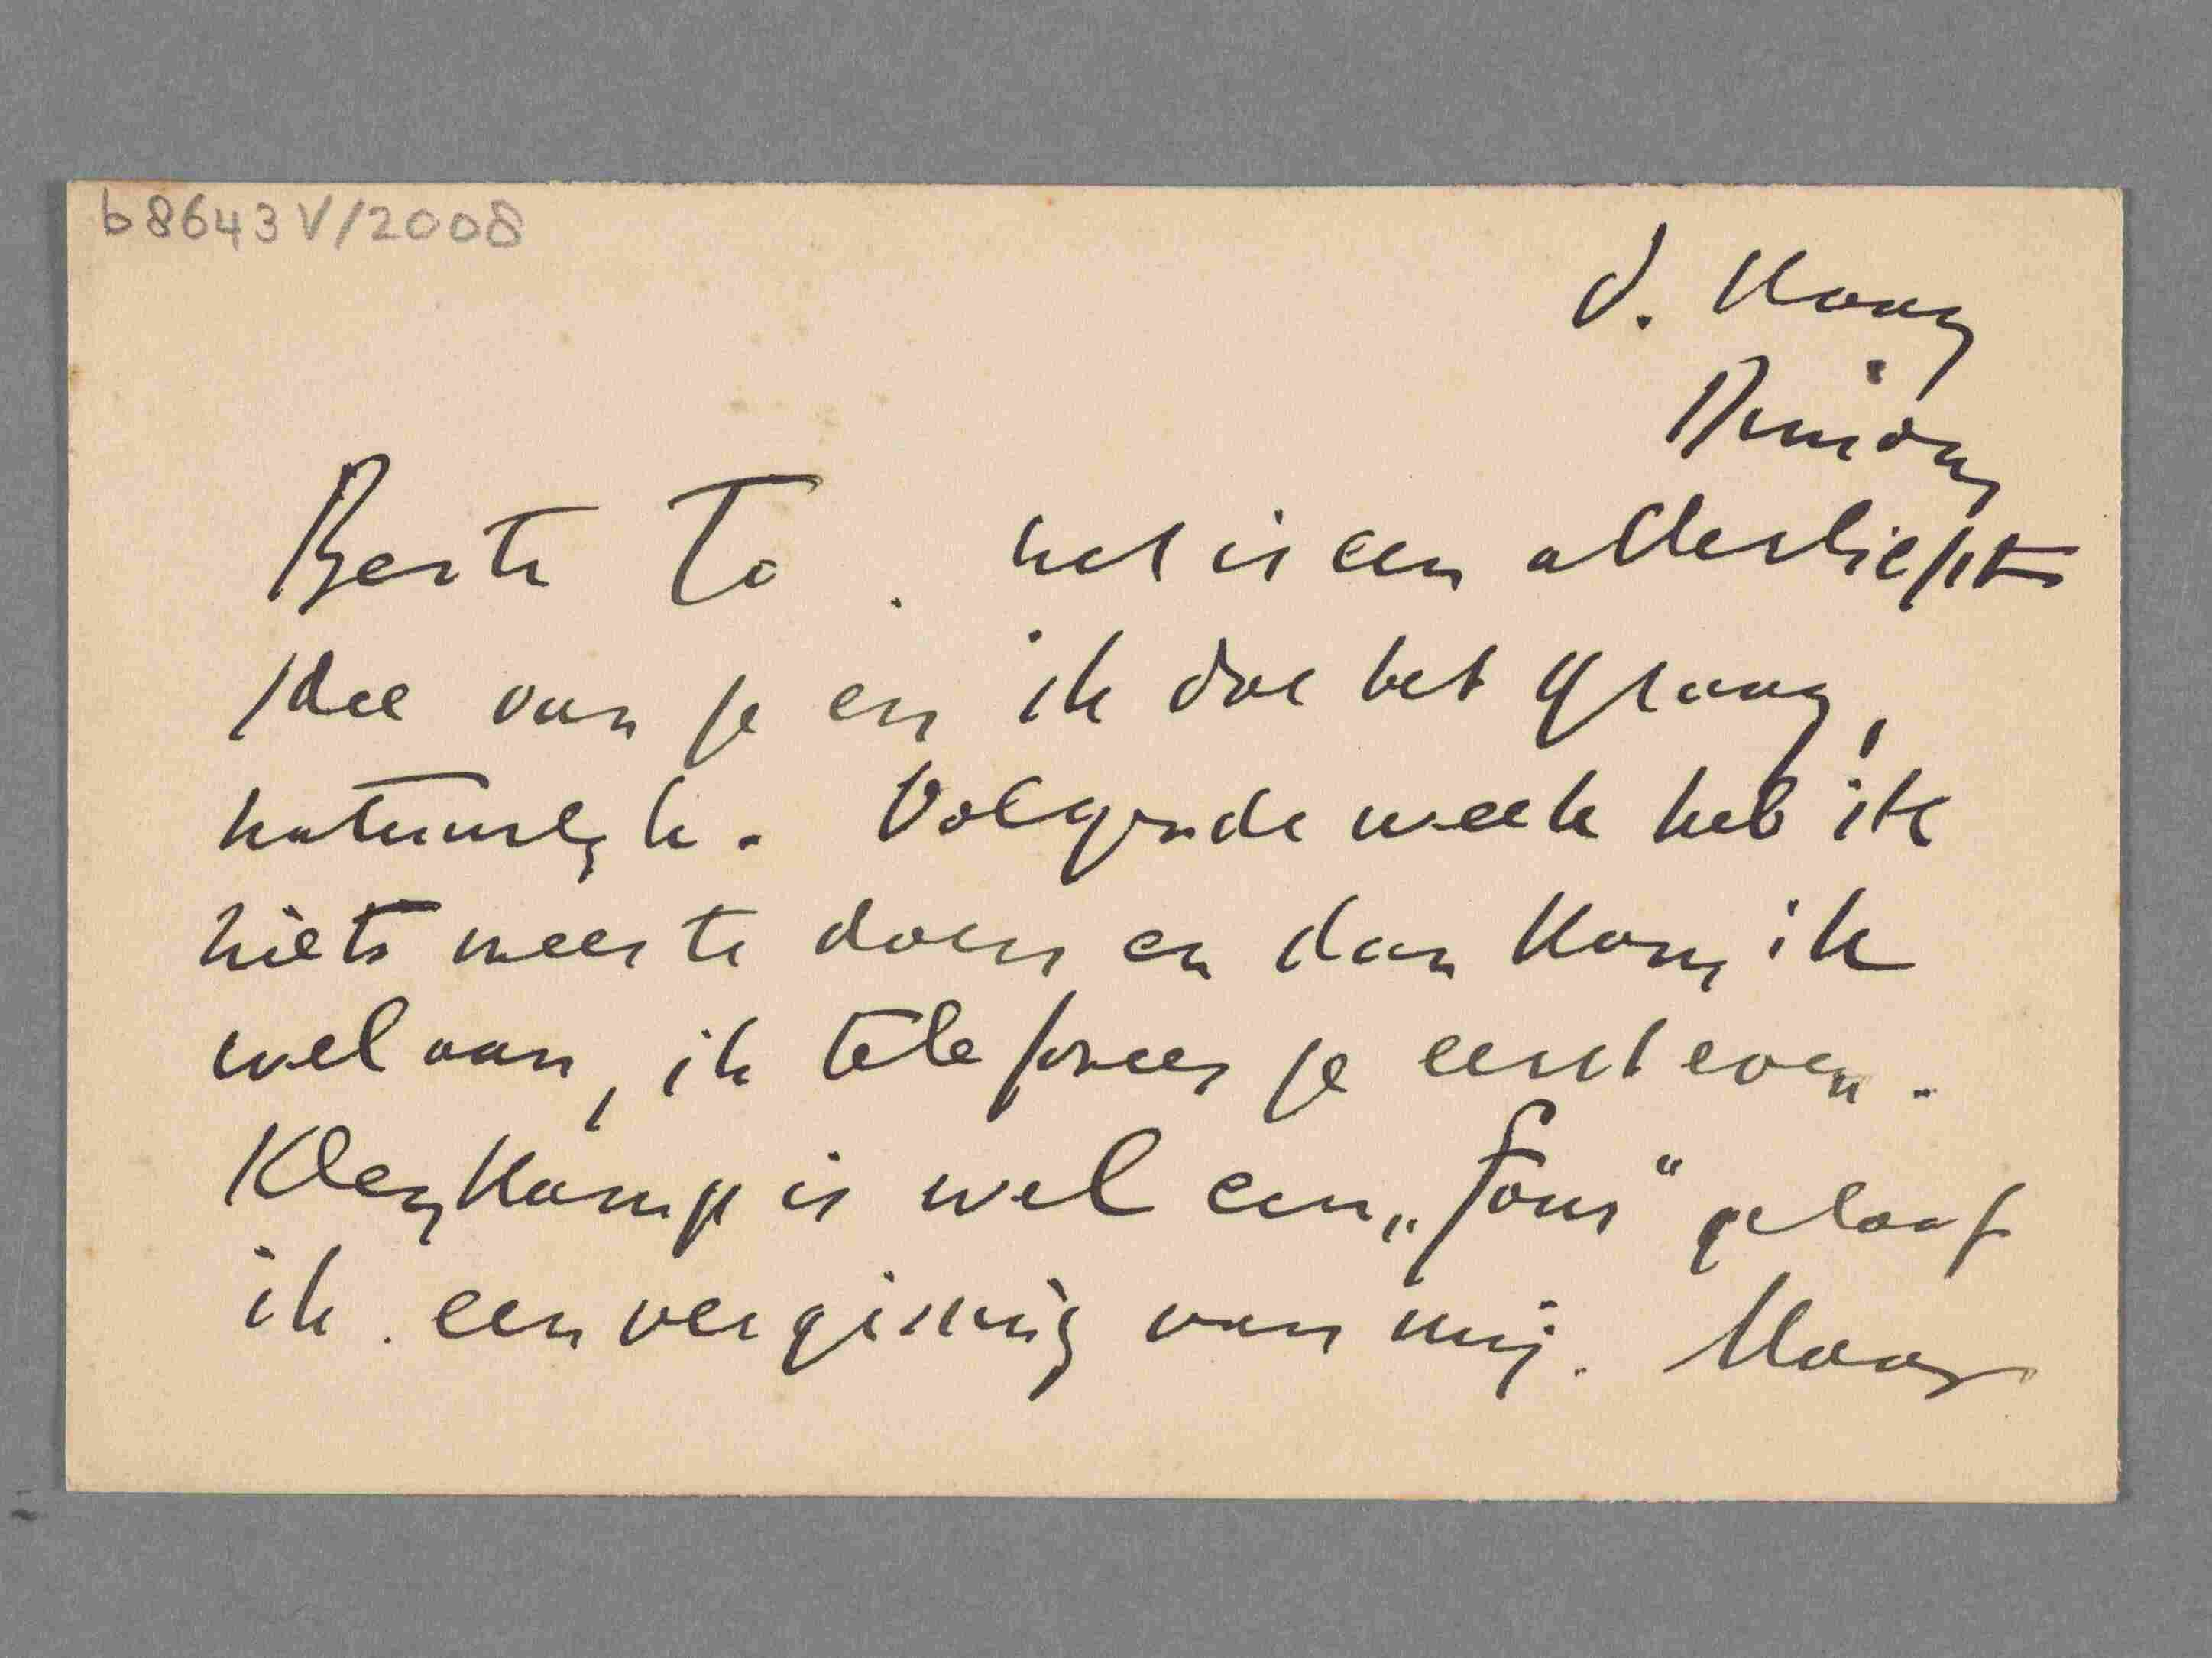 b8643 V/2008
d. Haag
Dinsdag
Beste To. het is een allerliefste
Idee van je en ik doe het graag,
natuurlijk. Volgende week heb ik
niets meer te doen en dan kom ik
wel aan, ik telefoneer je eerst even.
Kleykamp is wel een „four" geloof
ik. een vergissing van mij. Maar